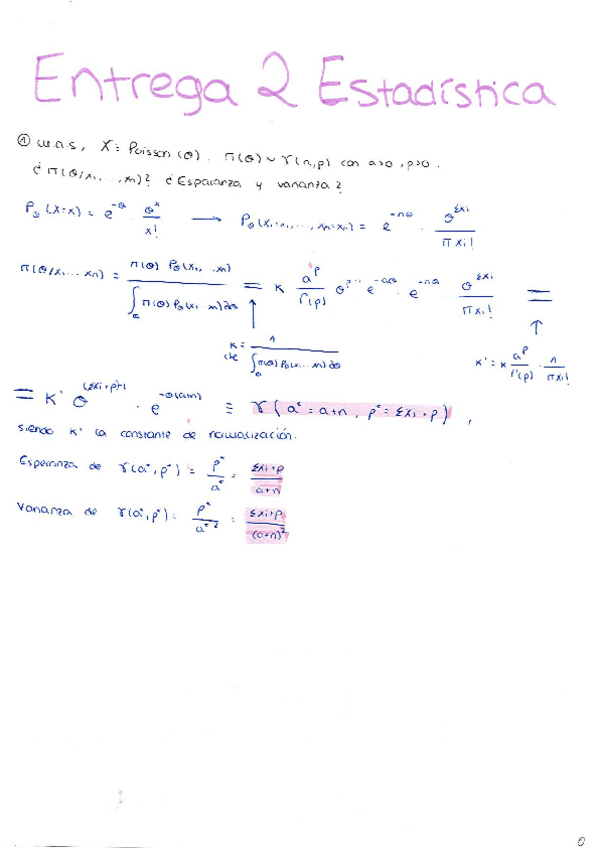 Entrega 2 Estadística
① m.a.s, X ≡ Poisson (θ). π(θ) ~ γ(a,p) con a>0, p>0.
¿π(θ/x₁,...,xn)? ¿Esperanza y varianza?
Pθ(X=x) = e^{-θ} · θ^x / x! → Pθ(X₁=x₁,...,Xn=xn) = e^{-nθ} · θ^{Σxi} / π xi!
π(θ/x₁...xn) = π(θ) Pθ(x₁,..xn) / ∫_Θ π(θ) Pθ(x₁..xn)dθ = K a^p / Γ(p) θ^{p-1} e^{-aθ} · e^{-nθ} θ^{Σxi} / π xi! =
K = 1 / ∫_Θ π(θ) Pθ(x₁...xn)dθ
cte
K' = K a^p / Γ(p) · 1 / πxi!
= K' θ^{(Σxi+p)-1} · e^{-θ(a+n)} ≡ γ(a* = a+n, p* = Σxi+p),
siendo K' la constante de normalización.
Esperanza de γ(a*,p*) = p* / a* = Σxi+p / a+n
Varianza de γ(a*,p*) = p* / a*² = Σxi+p / (a+n)²
0